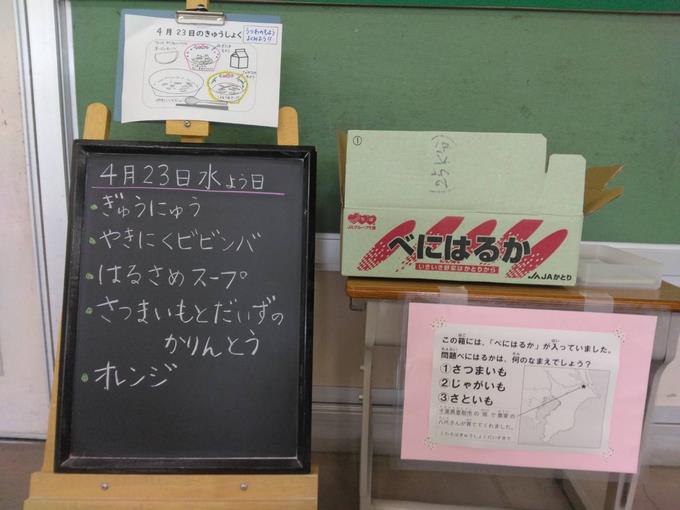 4月23日のきゅうしょく
4月23日水よう日
・ぎゅうにゅう
・やきにくビビンバ
・はるさめスープ
・さつまいもとだいずの
かりんとう
・オレンジ
①
(25kg)
JAグループ千葉
べにはるか
いきいき野菜はかとりから
JAかとり
この箱には、「べにはるか」が入っていました。
問題べにはるかは、何のなまえでしょう?
①さつまいも
②じゃがいも
③さといも